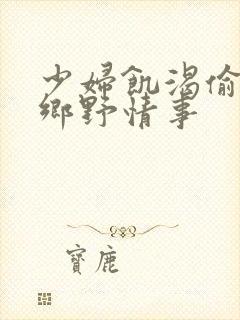 少婦飢渴偷
鄉野情事
寶鹿